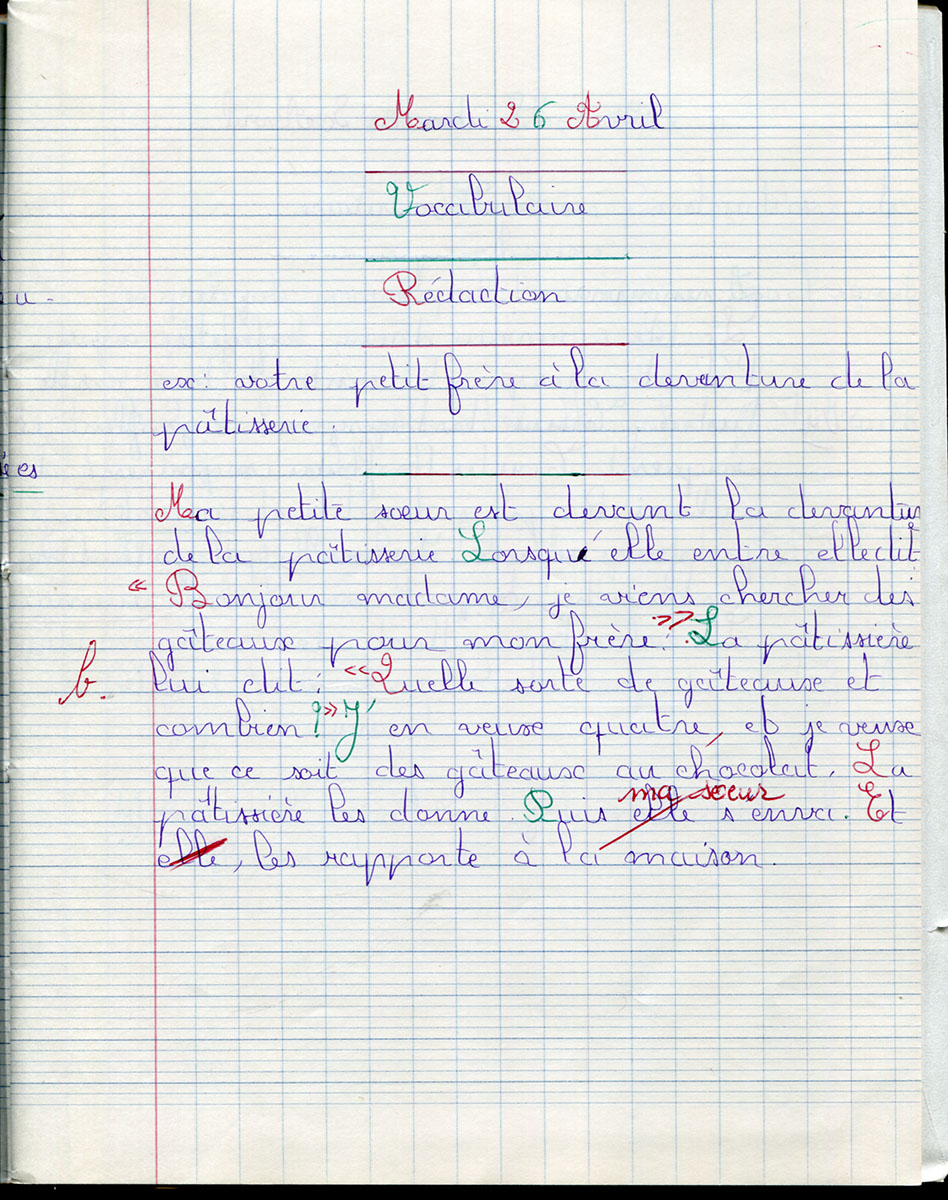 Mardi 26 Avril
Vocabulaire
Rédaction
ex: votre petit frère à la devanture de la
pâtisserie.
Ma petite sœur est devant la devantur
de la pâtisserie Lorsqu'elle entre elle dit
« Bonjour madame, je viens chercher des
gâteaux pour mon frère. » La pâtissière
b. lui dit : « Quelle sorte de gâteaux et
combien ? » J' en veux quatre, et je veux
que ce soit des gâteaux au chocolat. La
ma sœur
pâtissière les donne. Puis elle s'enva. Et
elle, les rapporte à la maison.